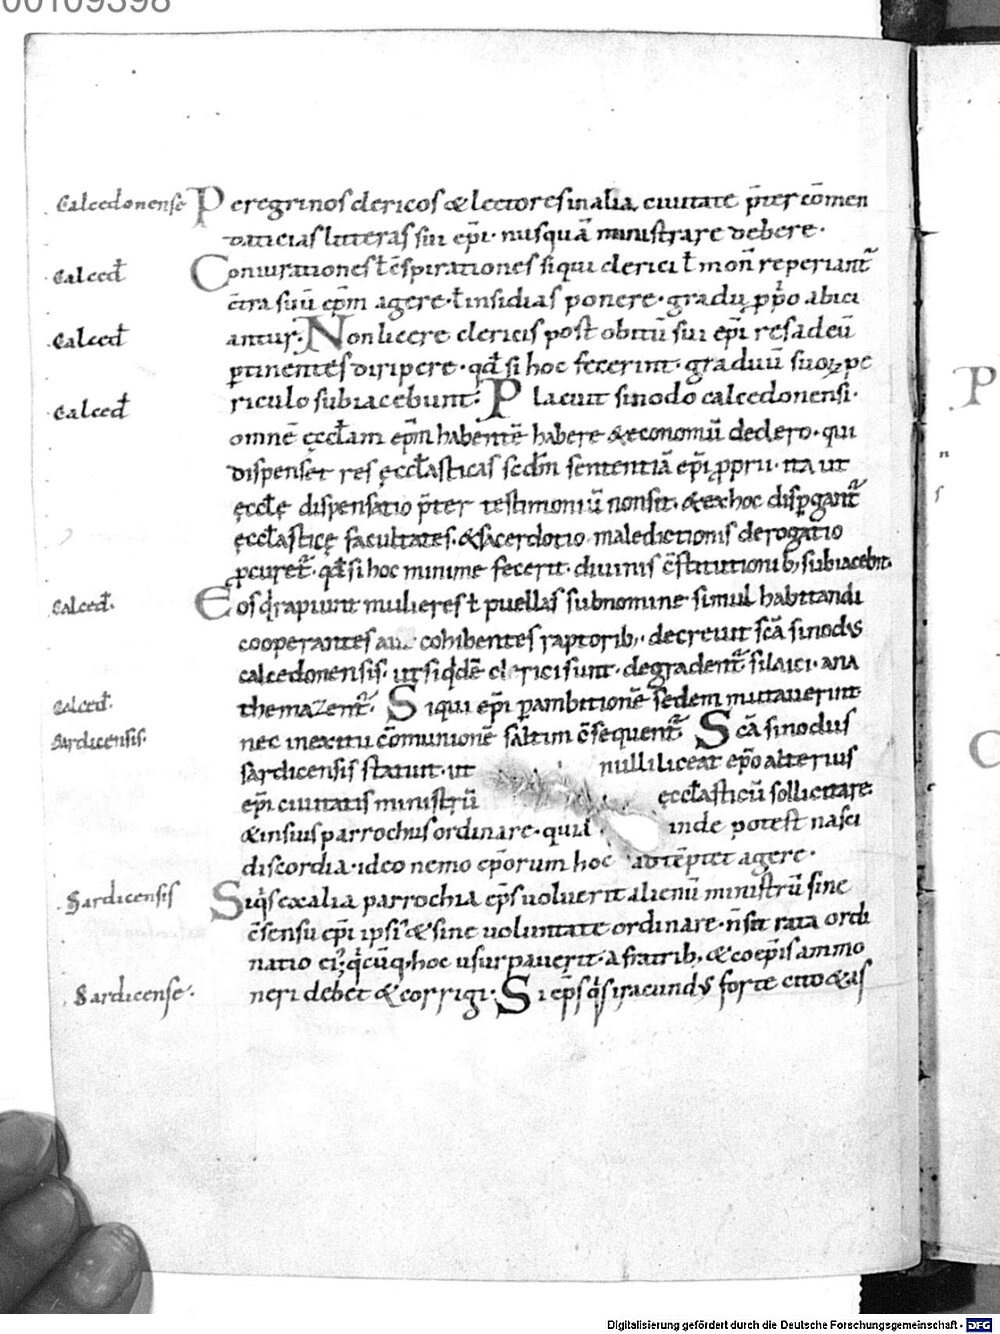 00109398
Calcedonense Peregrinos clericos & lectores in alia ciuitate p̄ter cōmen
daticias litteras sui ep̄i· nusquā ministrare debere·
Calced̄ Coniurationes ł c̄spirationes siqui clerici ł mon̄ reperiant᷑
c̄tra suū ep̄m agere· ł insidias ponere· gradu p̱p̱o abici
Calced̄ antur· Non licere clericis post obitū sui ep̄i res ad eū
ꝑtinentes diripere· qđ si hoc fecerint· graduū suoꝝ pe
Calced̄ riculo subiacebunt· Placuit sinodo calcedonensi·
omnē ęccłam ep̄m habentē habere & economū de clero· qui
dispenset res ęccłasticas scdm̄ sententiā ep̄i ꝓprii· ita ut
ęccłę dispensatio p̄ter testimoniū non sit· & ex hoc dispgant᷑
ęccłasticę facultates· & sacerdotio maledictionis derogatio
ꝓcuret᷑· qđ si hoc minime fecerit· diuinis c̄stitutionib; subiacebit·
Calced̄· Eos q̇ rapiunt mulieres ł puellas sub nomine simul habitandi
cooperantes au cohibentes raptorib;· decreuit sc̄a sinodus
calcedonensis· ut siq̇dē clerici sunt· degradent᷑ si laici· ana
Calced̄· themazent᷑· Siqui ep̄i ꝑ ambitionē sedem mutauerint
Sardicensis· nec in exitu cōmunionē saltim c̄sequent᷑ Sc̄a sinodus
sardicensis statuit· ut nulli liceat ep̄o alterius
ep̄i ciuitatis ministrū ęccłasticū sollicitare
& in suis parrochiis ordinare· quia inde potest nasci
discordia· ideo nemo ep̄orum hoc adtēptet agere·
Sardicensis Siq̇s ex alia parrochia ep̄s uoluerit alienū ministrū sine
c̄sensu ep̄i ipsi᷒ & sine uoluntate ordinare· n̄ sit rata ordi
natio ei᷒; q̇cūq; hoc usurpauerit· a fratrib; & coep̄is ammo
Sardicense· neri debet & corrigi· Si ep̄s q̇s iracundus forte cito & as
Digitalisierung gefördert durch die Deutsche Forschungsgemeinschaft - DFG